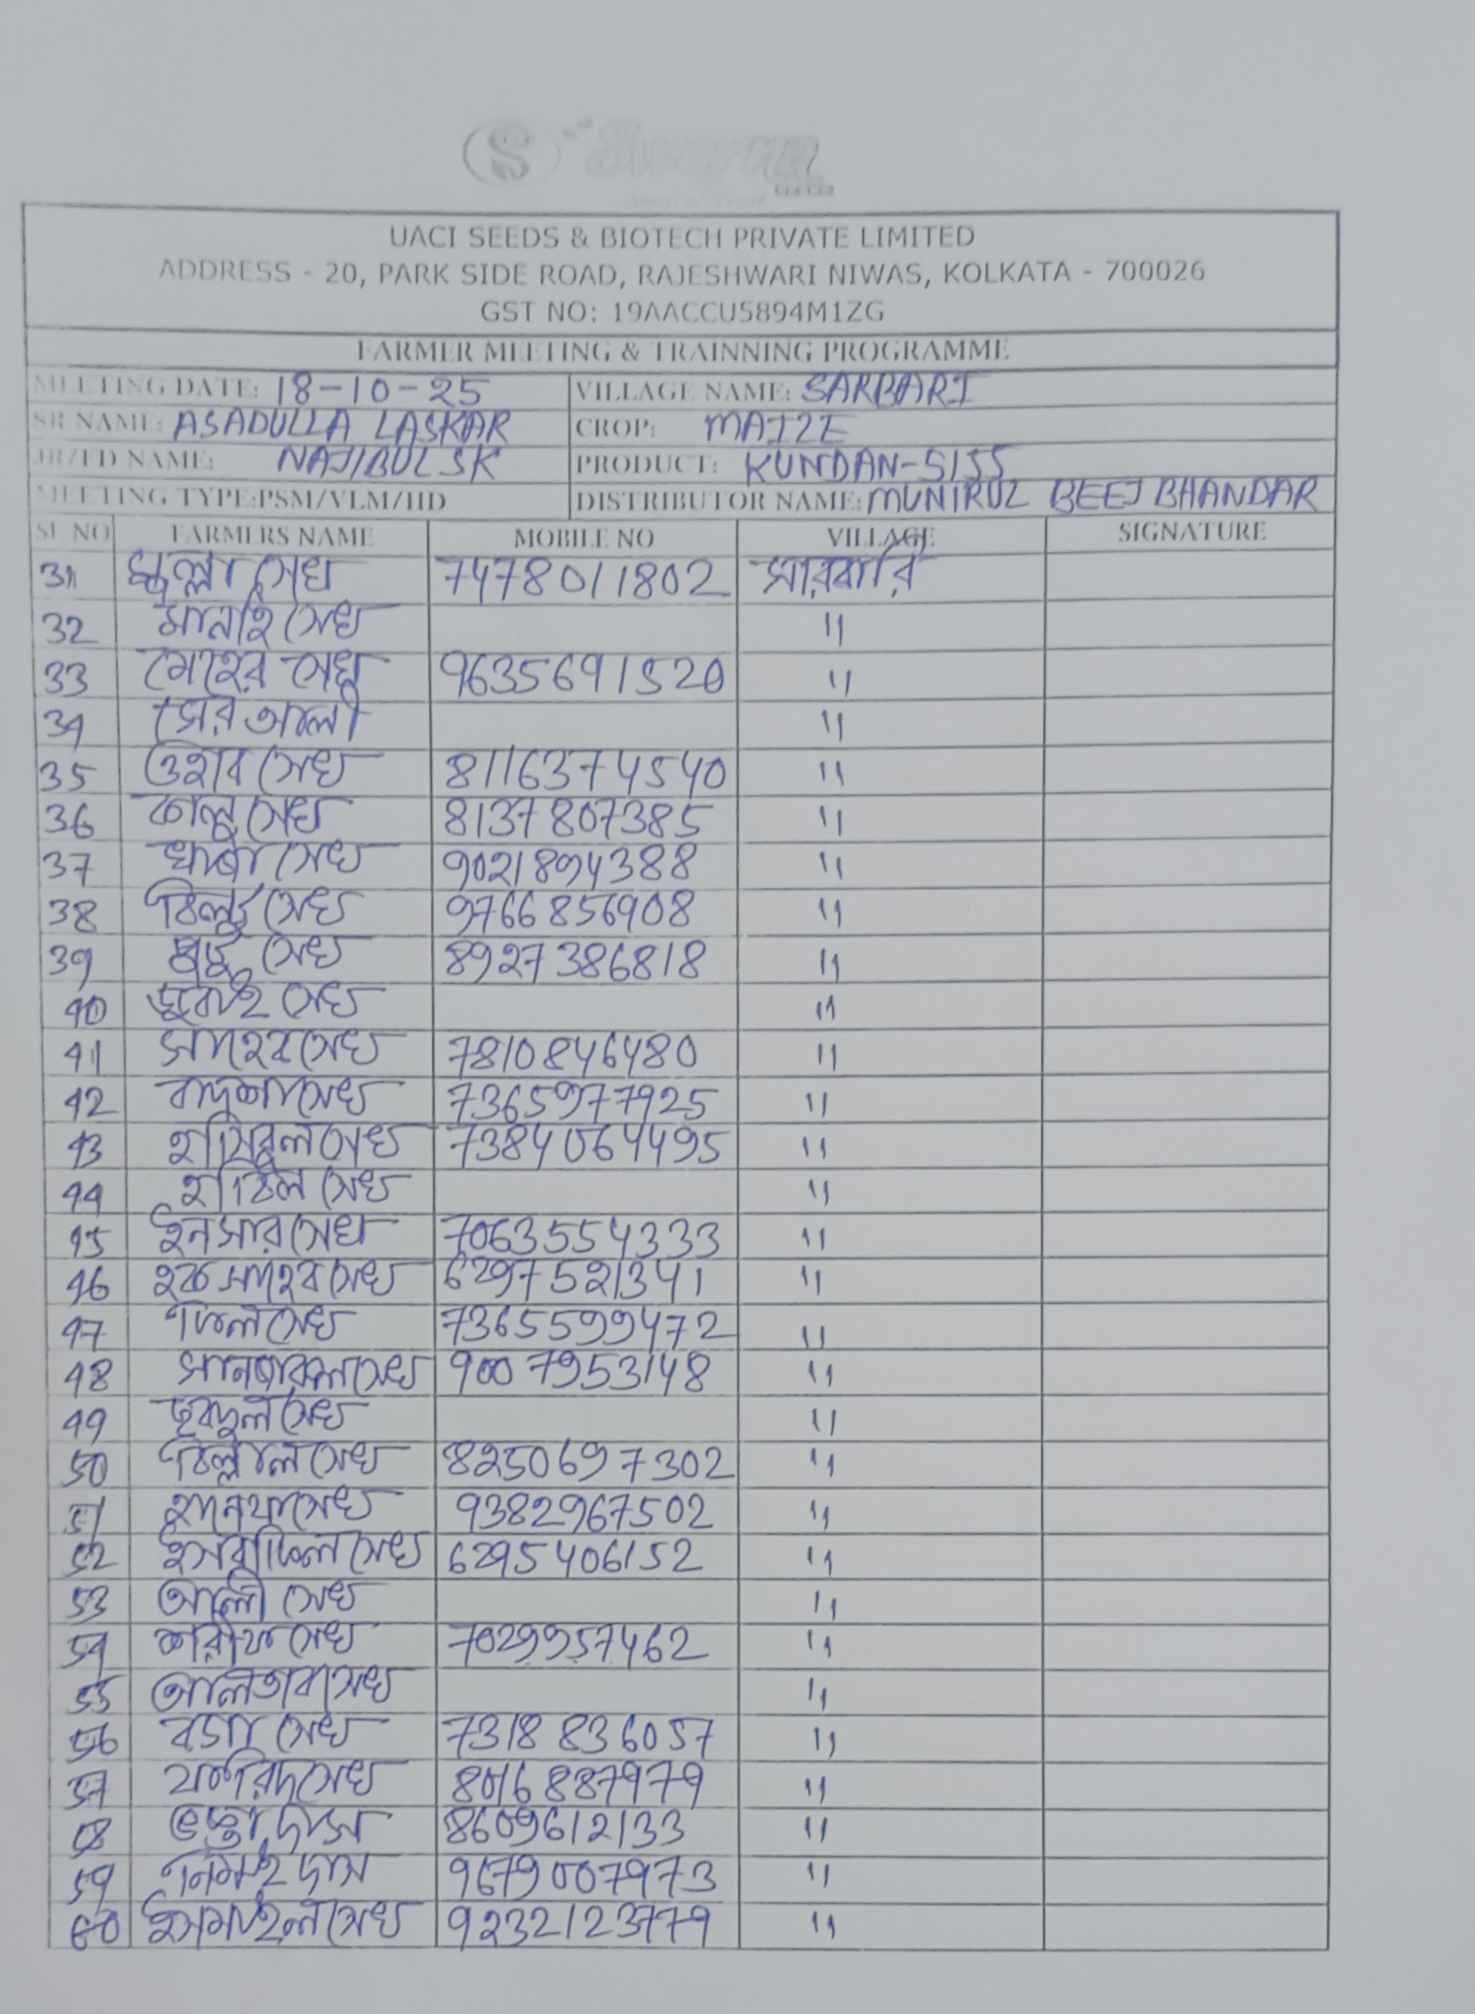 UACI SEEDS & BIOTECH PRIVATE LIMITED
ADDRESS - 20, PARK SIDE ROAD, RAJESHWARI NIWAS, KOLKATA - 700026
GST NO: 19AACCU5894M1ZG
FARMER MEETING & TRAINNING PROGRAMME
MEETING DATE: 18-10-25 VILLAGE NAME: SARBARI
SR NAME: ASADULLA LASKAR CROP: MAIZE
JR/FD NAME: NAJIBUL SK PRODUCT: KUNDAN-5155
MEETING TYPE:PSM/VLM/HD DISTRIBUTOR NAME: MUNIRUL BEEJ BHANDAR
SL NO FARMERS NAME MOBILE NO VILLAGE SIGNATURE
31 সেখ 7478011802 সারবারি
32 সেখ "
33 মেহের সেখ 9635691520 "
34 সের আলী "
35 ওহাব সেখ 8116374540 "
36 কালু সেখ 8137807385 "
37 সেখ 9021894388 "
38 সেখ 9766856908 "
39 সেখ 8927386818 "
40 সেখ "
41 সাহেব সেখ 7810846480 "
42 বাদশা সেখ 7365977925 "
43 হাসিবুল সেখ 7384064495 "
44 সেখ "
45 ইনসার সেখ 7063554333 "
46 হক সাহেব সেখ 6297521341 "
47 সেখ 7365599472 "
48 সেখ 9007953148 "
49 সেখ "
50 সেখ 8250697302 "
51 সেখ 9382967502 "
52 ইসরাফিল সেখ 6295406152 "
53 আলী সেখ "
54 সেখ 7029957462 "
55 আলতাব সেখ "
56 সেখ 7318836057 "
57 সেখ 8016887979 "
58 দাস 8609612133 "
59 নিমাই দাস 9679007973 "
60 ইসমাইল সেখ 9232123779 "